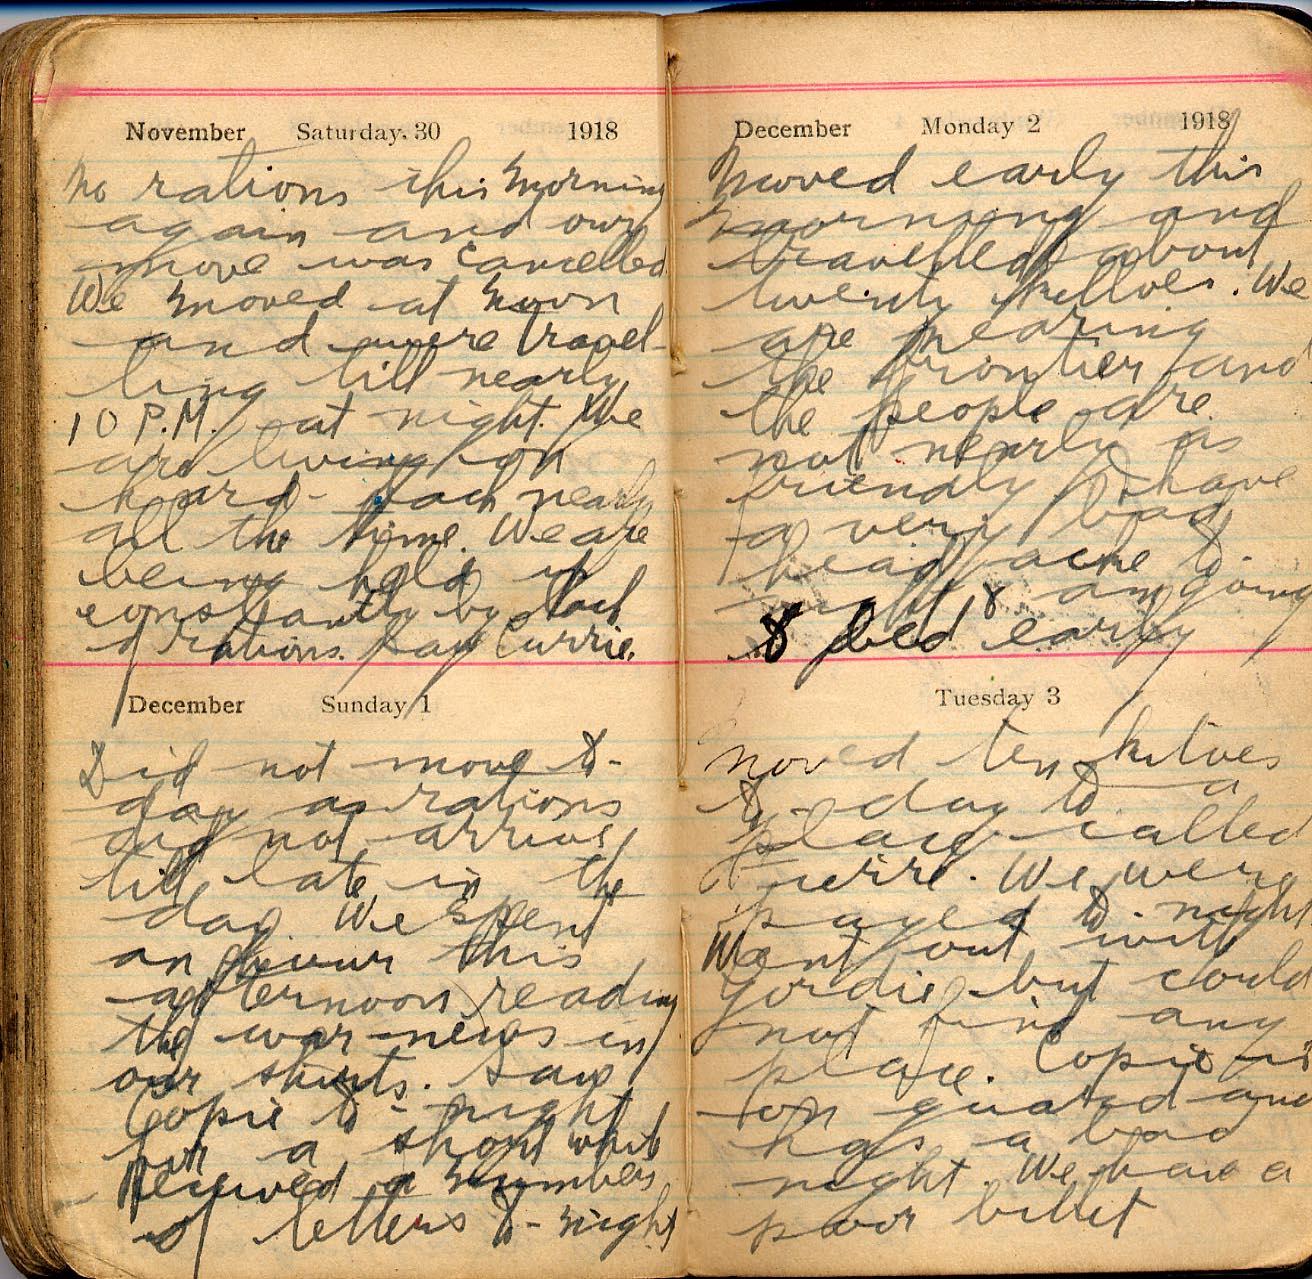 November Saturday. 30 1918
No rations this morning
again and our
move was cancelled
We moved at noon
and were travel-
ling till nearly
10 P.M. at night. We
are living on
hard-tack nearly
all the time. We are
being held up
constantly by lack
of rations. Saw Currie.
December Sunday 1
Did not move to-
day as rations
did not arrive
till late in the
day We spent
an hour this
afternoon reading
the war news in
our shirts. Saw
Copie to-night
for a short while
Received a number
of letters to-night
December Monday 2 1918
Moved early this
morning and
travelled about
twenty killoes. We
are nearing
the frontier and
the people are
not nearly as
friendly I have
a very bad
head ache to-
night & am going
to bed early
Tuesday 3
Moved ten kiloes
to-day to a
place called
We were
payed to-night
Went out with
Gordie but could
not find any
place. Copie is
on guard and
has a bad
night. We have a
poor billet